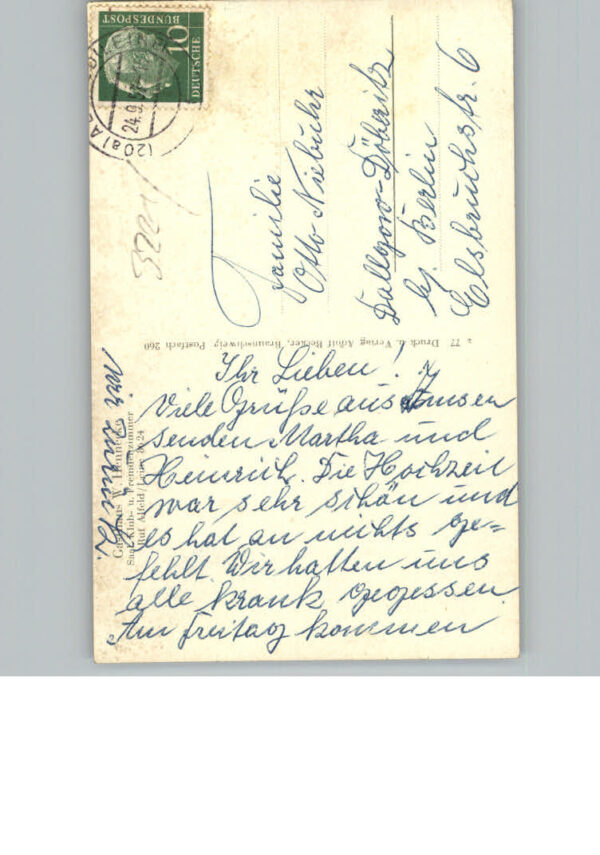 DEUTSCHE
BUNDESPOST
10
(20a)
24.9.
3221
Familie
Otto Niebuhr
Dallgow-Döberitz
bj. Berlin
Elsbruchstr. 6
77 Druck u. Verlag Adolf Becker, Braunschweig Postfach 260
Gasthaus W. Henne
Saal, Klub- u. Fremdenzimmer
Ruf Alfeld/Leine 8024
Ihr Lieben!
Viele Grüße aus
senden Martha und
Heinrich. Die Hochzeit
war sehr schön und
es hat an nichts ge=
fehlt. Wir hatten uns
alle krank gegessen.
Am Freitag kommen
wir zurück.